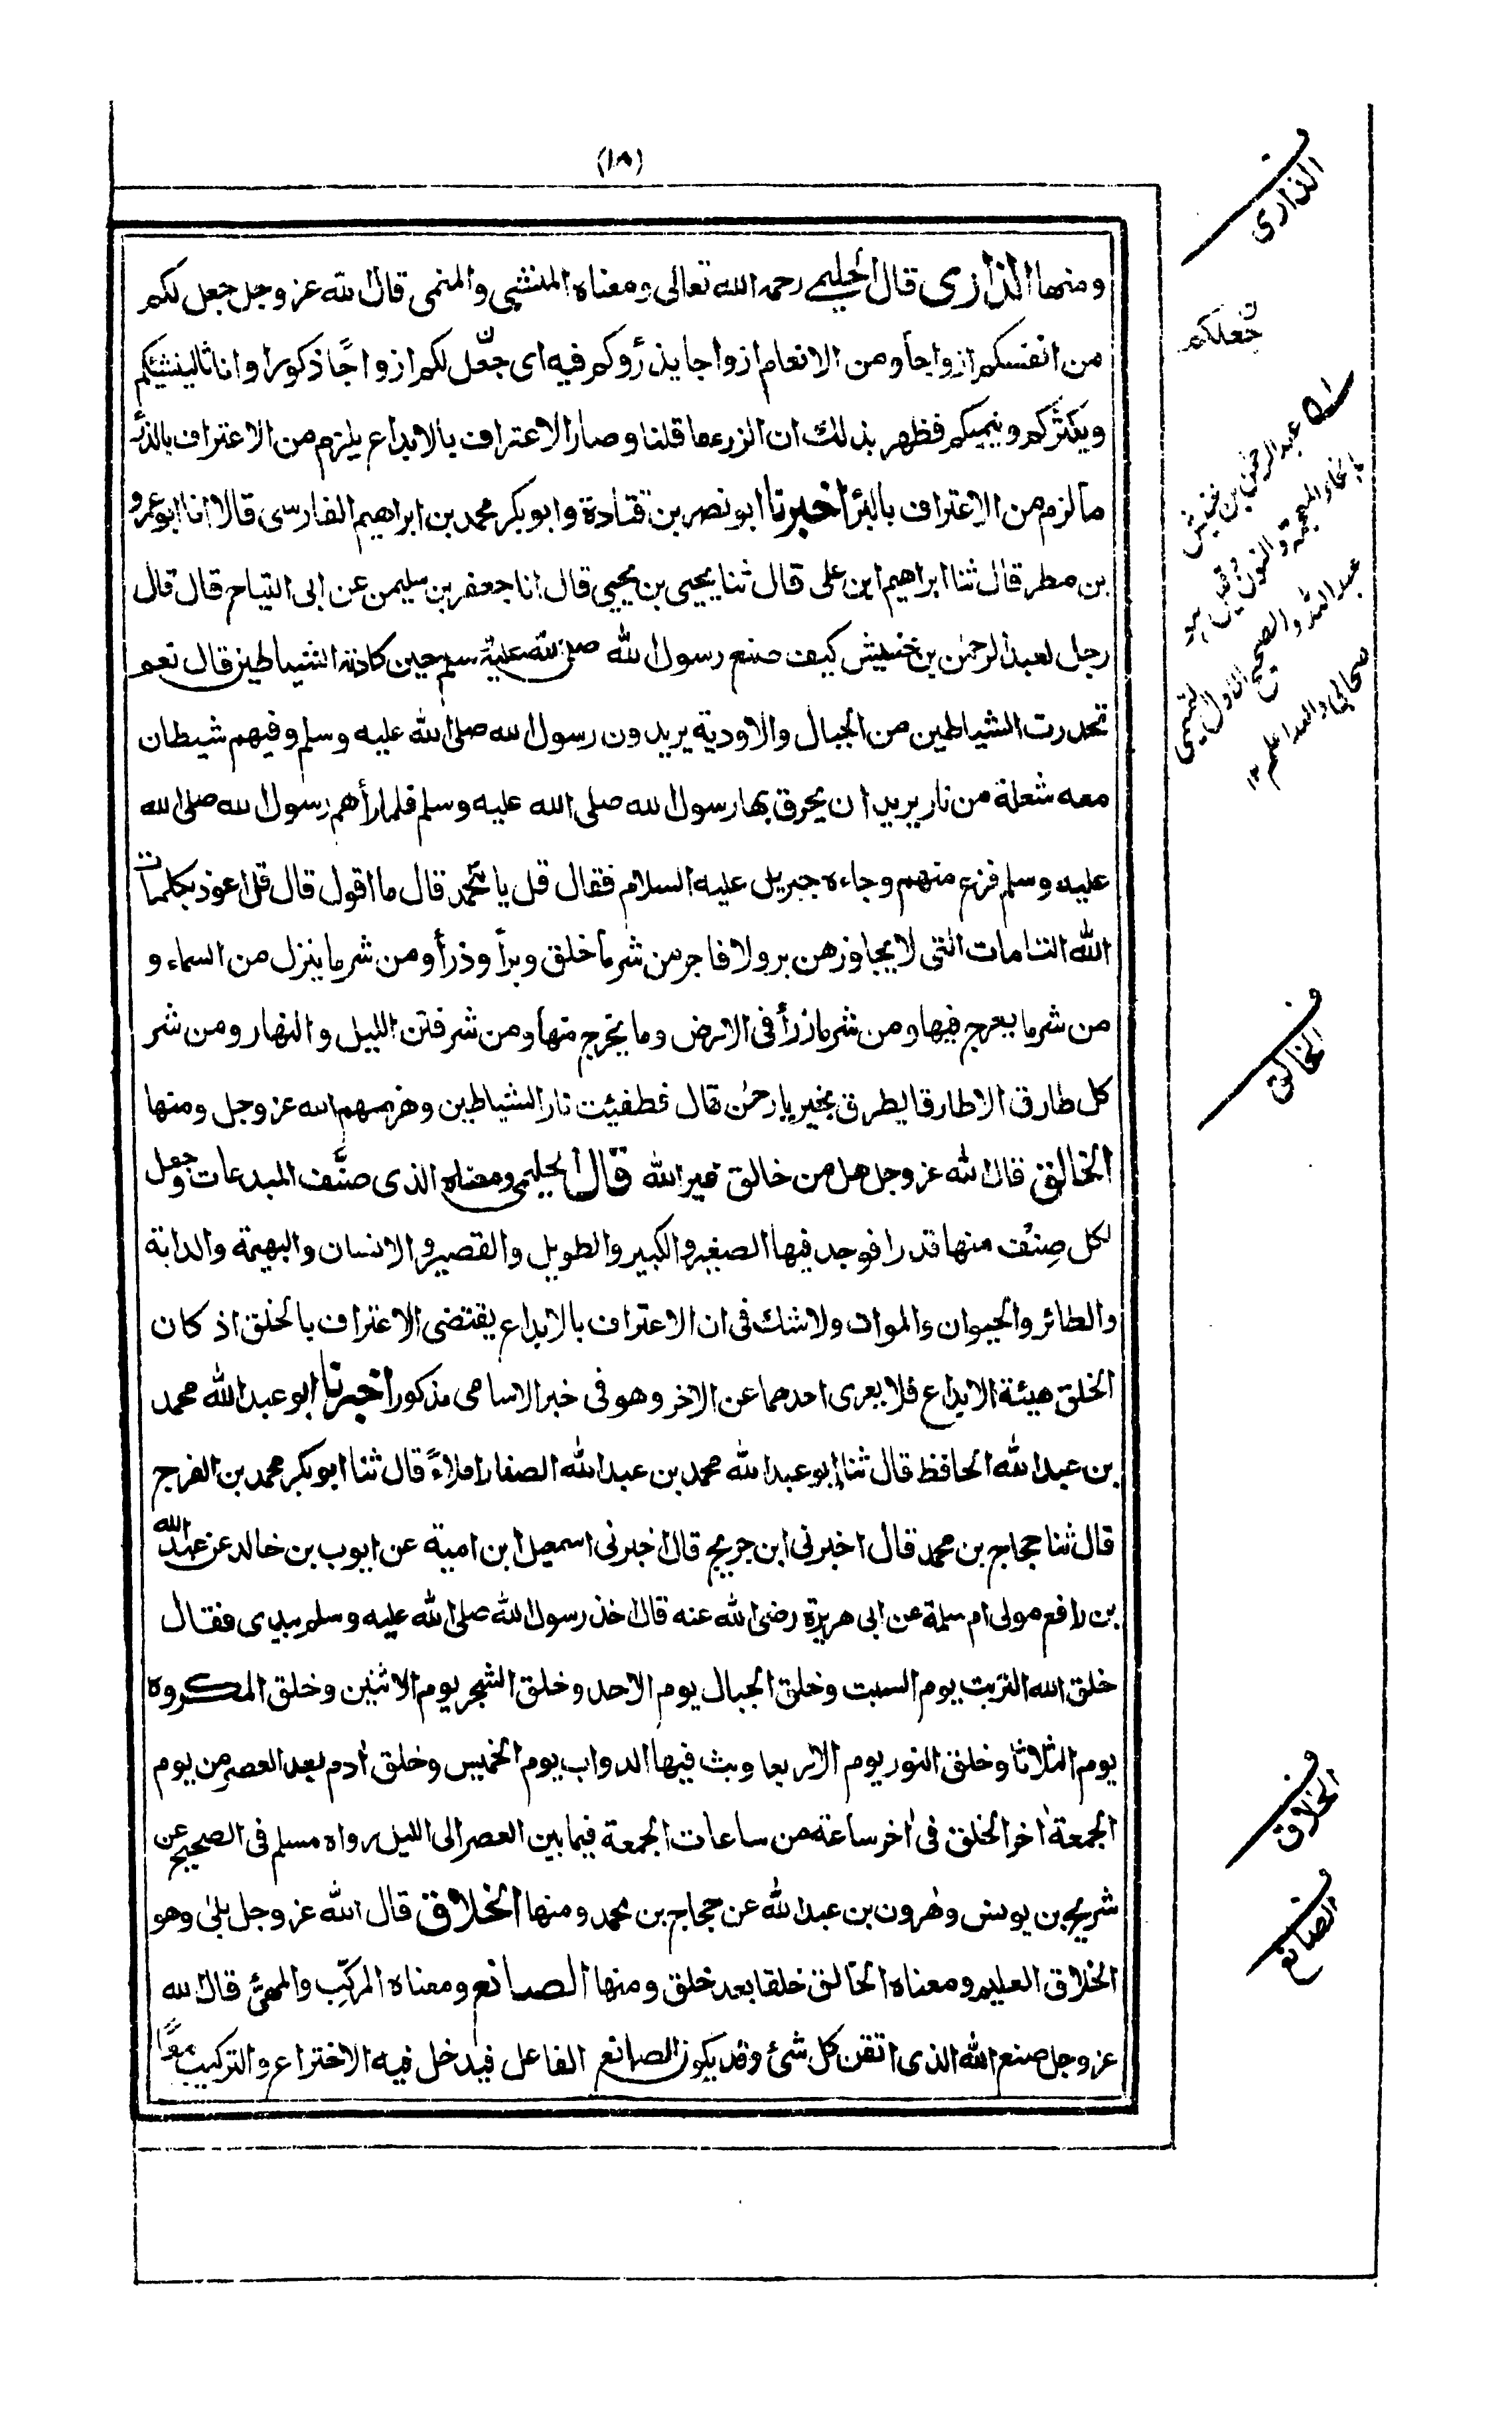 (١٨)
ومنها الذارى قال الحليمى رحمه الله تعالى ومعناه المنشئى والمنمى قال الله عز وجل جعل لكم
من انفسكم ازواجا ومن الانعام ازواجا يذرؤكم فيه اى جعل لكم ازواجًا ذكورا واناثا لينشيئكم
ويكثركم وينميكم فظهر بذلك ان الزرء ما قلنا وصار الاعتراف بالابداع يلزم من الاعتراف بالذرء
ما لزم من الاعتراف بالبرأ اخبرنا ابو نصر بن قتادة وابو بكر محمد بن ابراهيم الفارسى قالا انا ابو عمرو
بن مطر قال ثنا ابراهيم ابن على قال ثنا يحيى بن يحيى قال انا جعفر بن سليمن عن ابى التياح قال قال
رجل لعبد الرحمن بن خنيش كيف صنع رسول الله صلى الله عليه وسلم حين كادته الشياطين قال نعم
تحدرت الشياطين من الجبال والاودية يريدون رسول الله صلى الله عليه وسلم وفيهم شيطان
معه شعلة من نار يريد ان يحرق بها رسول الله صلى الله عليه وسلم فلما رأهم رسول الله صلى الله
عليه وسلم فزع منهم وجاءه جبريل عليه السلام فقال قل يا محمد قال ما اقول قال قل اعوذ بكلمات
الله التامات التى لا يجاوزهن بر ولا فاجر من شر ما خلق وبرأ وذرأ ومن شر ما ينزل من السماء و
من شر ما يعرج فيها ومن شر ما ذرأ فى الارض وما يخرج منها ومن شر فتن الليل والنهار ومن شر
كل طارق الا طارقا يطرق بخير يا رحمن قال فطفيئت نار الشياطين وهزمهم الله عز وجل ومنها
الخالق قال الله عز وجل هل من خالق غير الله قال الحليمى ومعناه الذى صنَّف المبدعات وجعل
لكل صِنْف منها قدرا فوجد فيها الصغير والكبير والطويل والقصير والانسان والبهيمة والدابة
والطائر والحيوان والموات ولا شك فى ان الاعتراف بالابداع يقتضى الاعتراف بالخلق اذ كان
الخلق هيئة الابداع فلا يعرى احدهما عن الاخر وهو فى خبر الاسامى مذكور اخبرنا ابو عبد الله محمد
بن عبد الله الحافظ قال ثنا ابو عبد الله محمد بن عبد الله الصفار املاءً قال ثنا ابو بكر محمد بن الفرج
قال ثنا حجاج بن محمد قال اخبرنى ابن جريج قال اخبرنى اسمعيل ابن امية عن ايوب بن خالد عن عبد الله
بن رافع مولى ام سلمة عن ابى هريرة رضى الله عنه قال اخذ رسول الله صلى الله عليه وسلم بيدى فقال
خلق الله التربت يوم السبت وخلق الجبال يوم الاحد وخلق الشجر يوم الاثنين وخلق المكروه
يوم الثلاثا وخلق النور يوم الاربعا وبث فيها الدواب يوم الخميس وخلق ادم بعد العصر من يوم
الجمعة اخر الخلق فى اخر ساعة من ساعات الجمعة فيما بين العصر الى الليل رواه مسلم فى الصحيح عن
شريح بن يونس وهرون بن عبد الله عن حجاج بن محمد ومنها الخلاق قال الله عز وجل بلى وهو
الخلاق العليم ومعناه الخالق خلقا بعد خلق ومنها الصانع ومعناه المركِّب والمهيئ قال الله
عز وجل صنع الله الذى اتقن كل شئ وقد يكون الصانع الفاعل فيدخل فيه الاختراع والتركيب معًا
ف
الذارى
جعلكم
عبد الرحمن بن خنيش
بالخاء المعجمة والنون وقيل هو
عبد الله والصحيح الاول
صحابى والله اعلم ١٢
ف
الخالق
ف
الخلاق
ف
الصانع